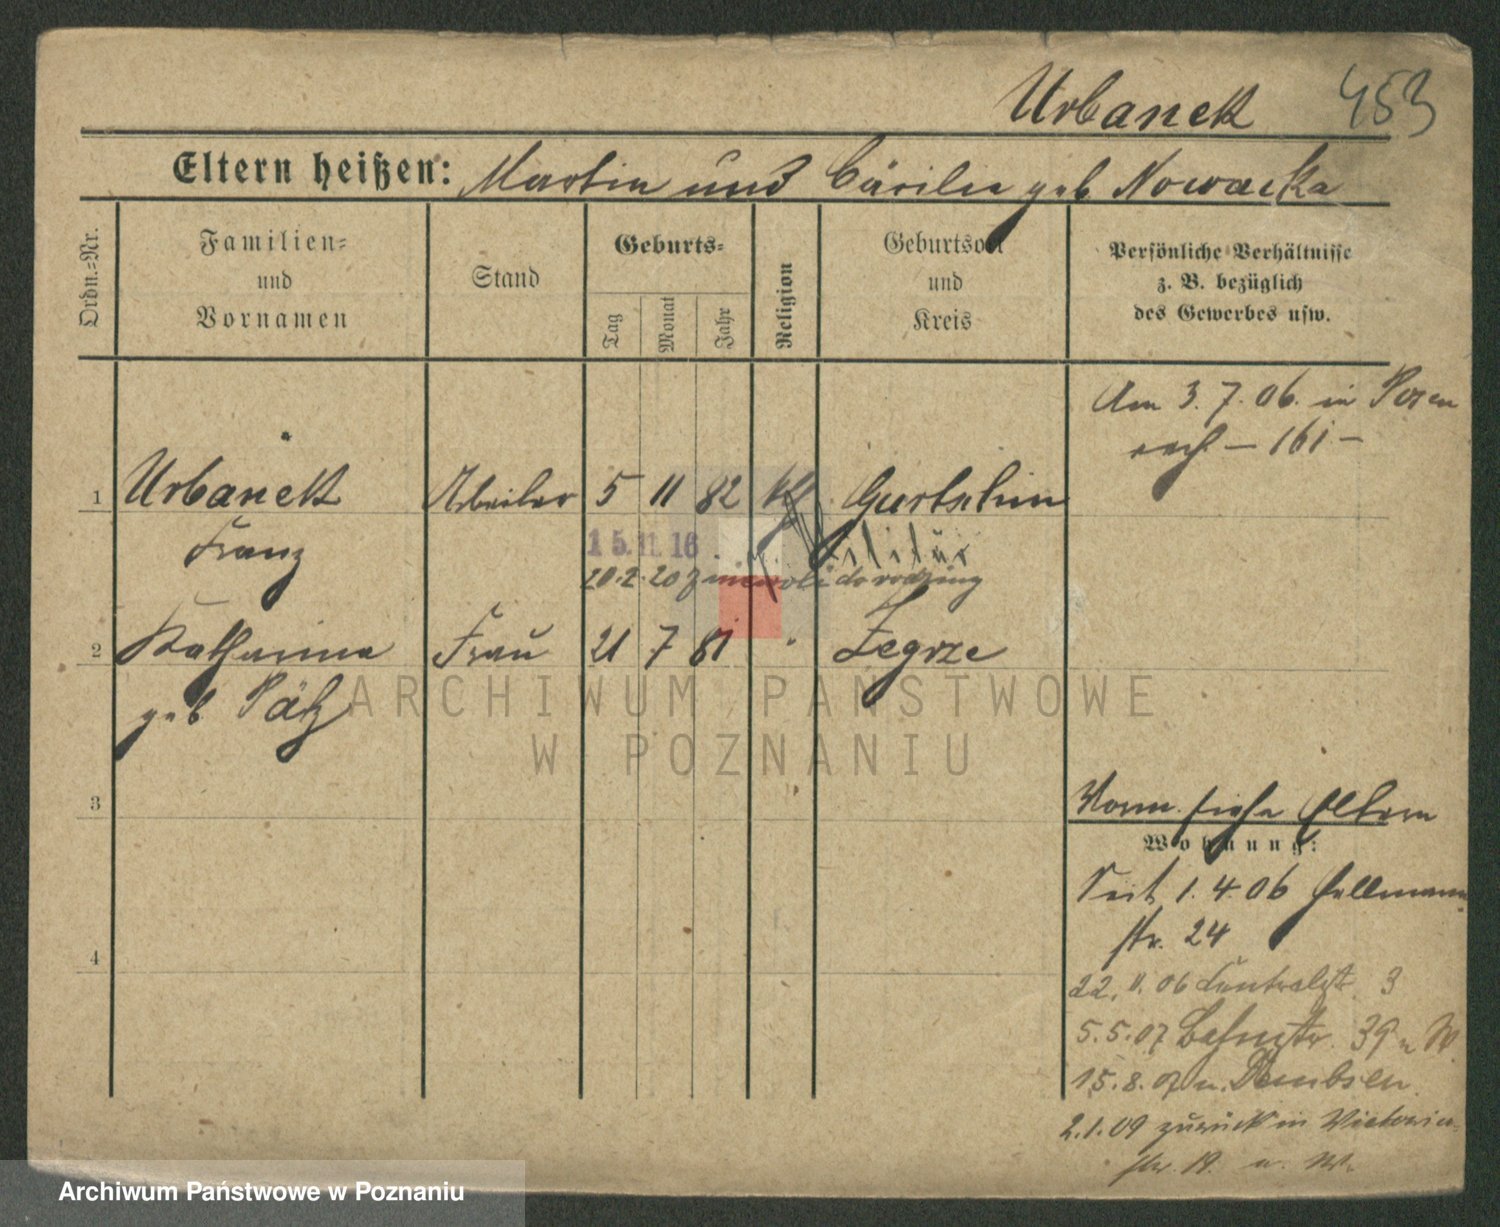 Urbanek 453
Eltern heißen: Martin und Cäcilie geb Nowacka
Ordn.=Nr.
Familien=
und
Vornamen
Stand
Geburts=
Tag
Monat
Jahr
Religion
Geburtsort
und
Kreis
Persönliche Verhältnisse
z. B. bezüglich
des Gewerbes usw.
Am 3. 7. 06. in Posen
— 161 —
1 Urbanek Arbeiter 5 11 82 kth Gurtschin
Franz
15. 11. 16 Militär
20.2.20 z niewoli do rodziny
2 Katharina Frau 21 7 81 " Zegrze
geb Pätz
ARCHIWUM PAŃSTWOWE
W POZNANIU
3
Vorm. siehe Eltern
Wohnung:
Seit 1. 4. 06 Hellmann
str. 24
4
22. 11. 06 Centralstr 3
5.5.07 Bahnstr. 39 u W.
15. 8. 07 n. Dembsen
2.1.09 zurück in Victoria
str. 19. u. W.
Archiwum Państwowe w Poznaniu